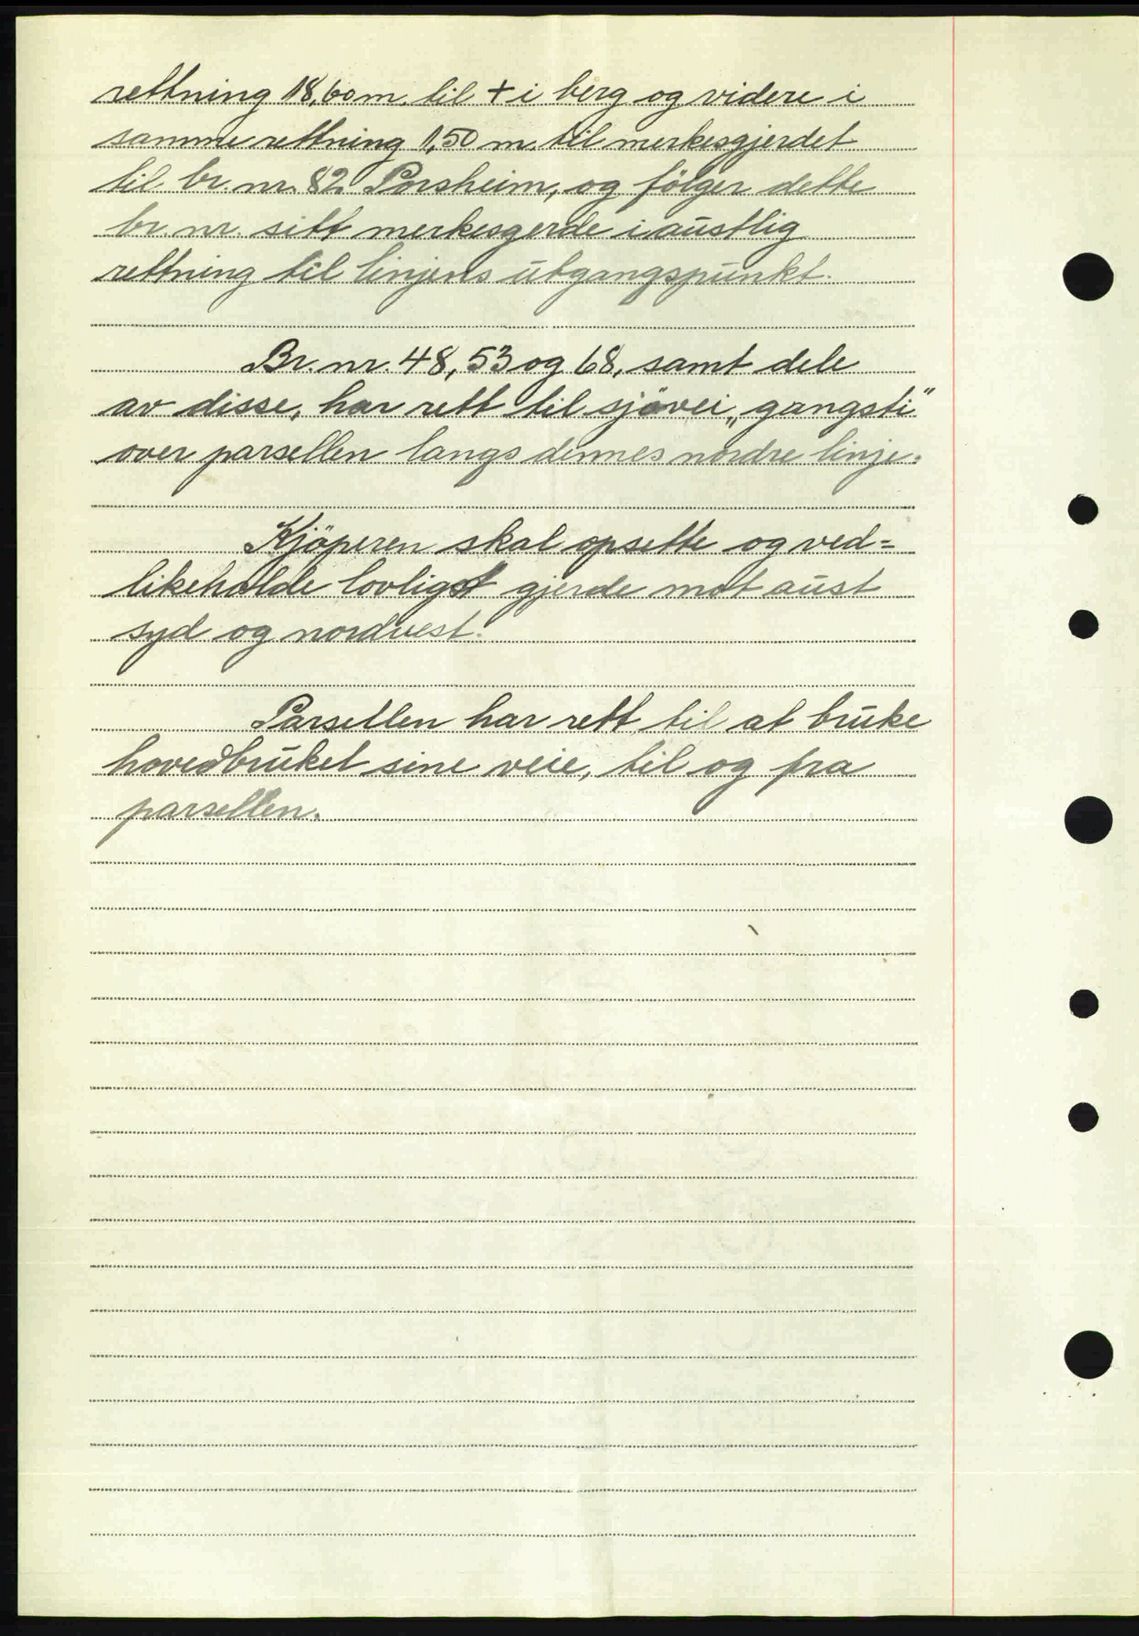 rettning 18,60 m. til + i berg og videre i
samme rettning 1,50 m. til merkesgjerdet
til br. nr. 82 Porsheim, og følger dette
br. nr. sitt merkesgerde i austlig
rettning til linjens utgangspunkt.
Br. nr. 48, 53 og 68, samt dele
av disse, har rett til sjövei „gangsti"
over parsellen langs dennes nordre linje.
Kjöperen skal opsette og ved=
likeholde lovligt gjerde mot aust
syd og nordvest.
Parsellen har rett til at bruke
hovedbruket sine veie, til og fra
parsellen.